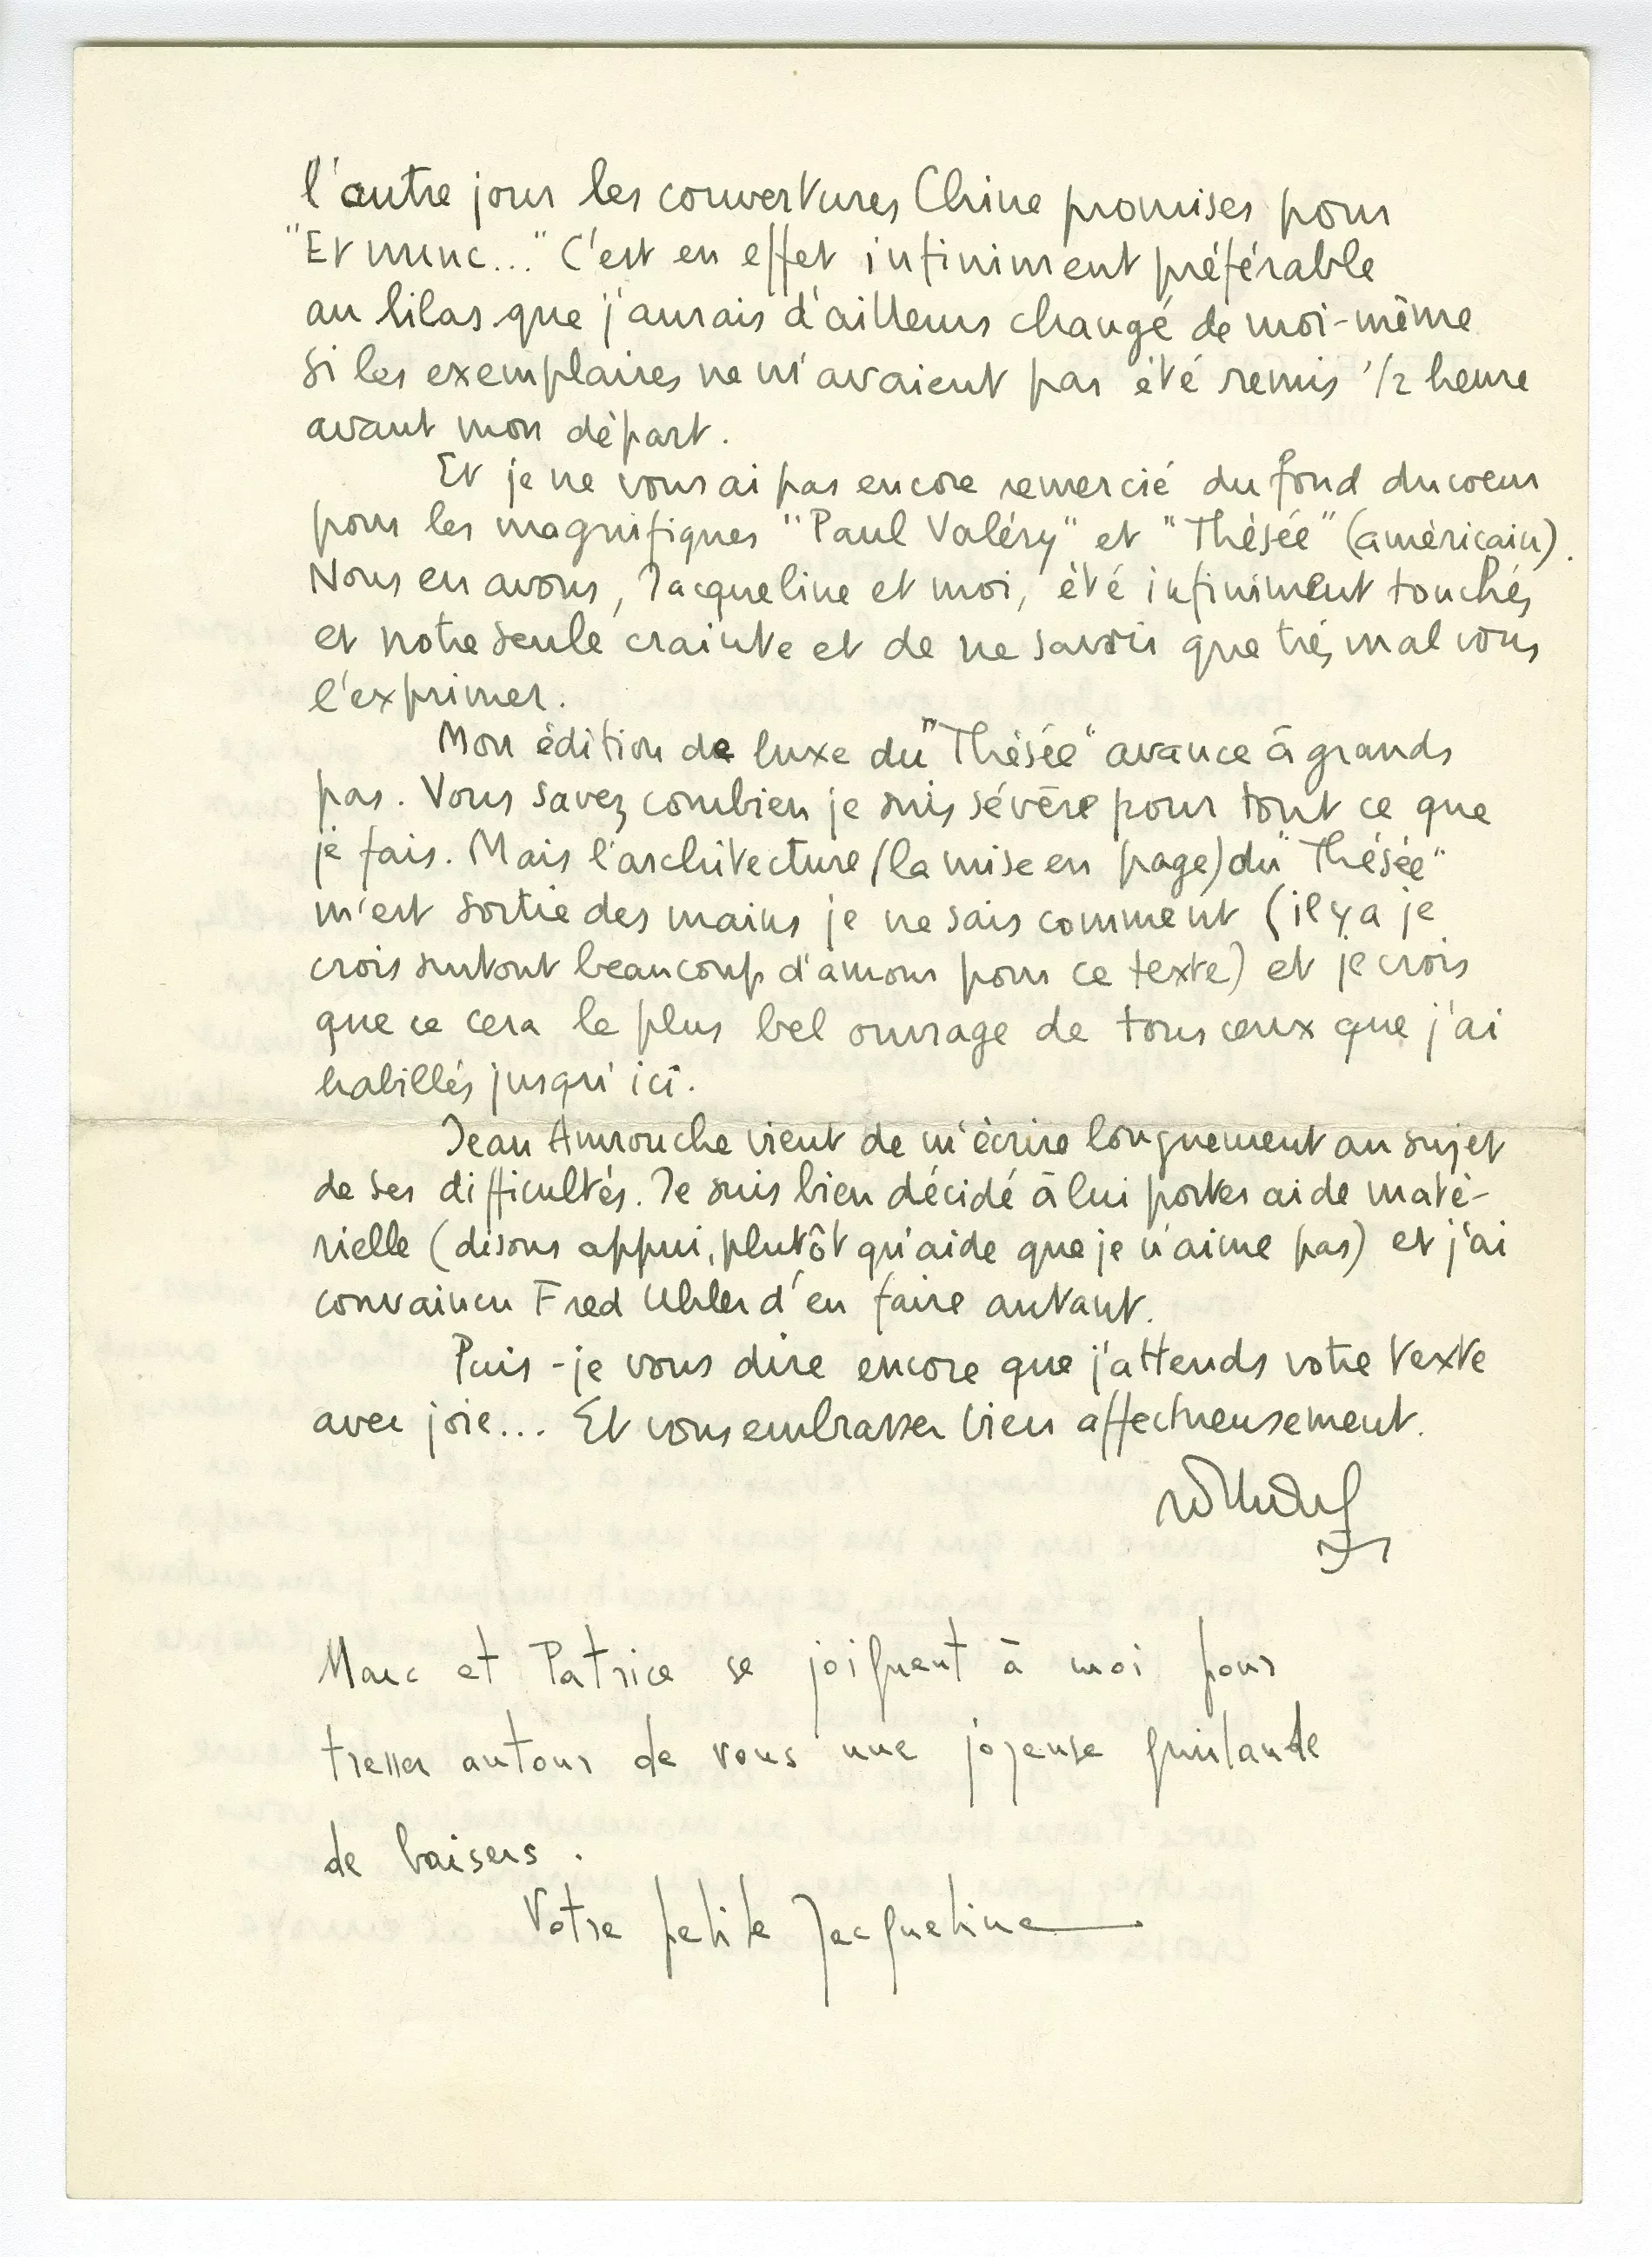 l'autre jour les couvertures Chine promises pour
"Et nunc..." C'est en effet infiniment préférable
au lilas que j'aurais d'ailleurs changé de moi-même
si les exemplaires ne m'avaient pas été remis 1/2 heure
avant mon départ.
Et je ne vous ai pas encore remercié du fond du coeur
pour les magnifiques "Paul Valéry" et "Thésée" (américain).
Nous en avons, Jacqueline et moi, été infiniment touchés
et notre seule crainte et de ne savoir que très mal vous
l'exprimer.
Mon édition de luxe du "Thésée" avance à grands
pas. Vous savez combien je suis sévère pour tout ce que
je fais. Mais l'architecture (la mise en page) du "Thésée"
m'est sortie des mains je ne sais comment (il y a je
crois surtout beaucoup d'amour pour ce texte) et je crois
que ce cera le plus bel ouvrage de tous ceux que j'ai
habillés jusqu'ici.
Jean Amrouche vient de m'écrire longuement au sujet
de ses difficultés. Je suis bien décidé à lui porter aide maté-
rielle (disons appui, plutôt qu'aide que je n'aime pas) et j'ai
convaincu Fred Uhler d'en faire autant.
Puis-je vous dire encore que j'attends votre texte
avec joie... Et vous embrasser bien affectueusement.
Marc et Patrice se joignent à moi pour
tresser autour de vous une joyeuse guirlande
de baisers.
Votre petite Jacqueline